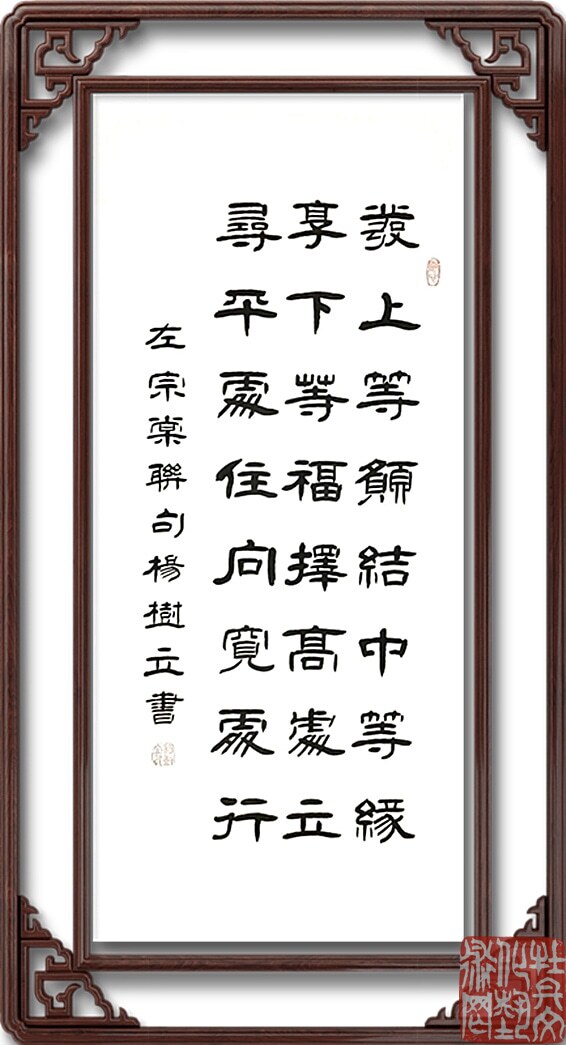 發上等願結中等緣
享下等福擇高處立
尋平處住向寬處行
左宗棠聯句楊樹立書
牡丹文
化藝
術网